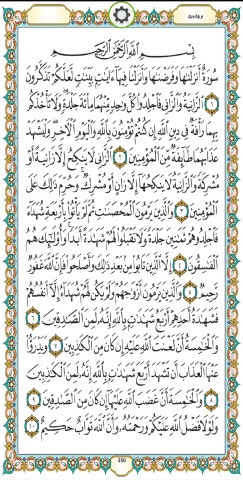 An-Nur
بِسْمِ اللَّهِ الرَّحْمَٰنِ الرَّحِيمِ
سُورَةٌ أَنزَلْنَاهَا وَفَرَضْنَاهَا وَأَنزَلْنَا فِيهَا آيَاتٍ بَيِّنَاتٍ لَّعَلَّكُمْ تَذَكَّرُونَ
١ الزَّانِيَةُ وَالزَّانِي فَاجْلِدُوا كُلَّ وَاحِدٍ مِّنْهُمَا مِائَةَ جَلْدَةٍ وَلَا تَأْخُذْكُم
بِهِمَا رَأْفَةٌ فِي دِينِ اللَّهِ إِن كُنتُمْ تُؤْمِنُونَ بِاللَّهِ وَالْيَوْمِ الْآخِرِ وَلْيَشْهَدْ
عَذَابَهُمَا طَائِفَةٌ مِّنَ الْمُؤْمِنِينَ ٢ الزَّانِي لَا يَنكِحُ إِلَّا زَانِيَةً أَوْ
مُشْرِكَةً وَالزَّانِيَةُ لَا يَنكِحُهَا إِلَّا زَانٍ أَوْ مُشْرِكٌ وَحُرِّمَ ذَٰلِكَ عَلَى
الْمُؤْمِنِينَ ٣ وَالَّذِينَ يَرْمُونَ الْمُحْصَنَاتِ ثُمَّ لَمْ يَأْتُوا بِأَرْبَعَةِ شُهَدَاءَ
فَاجْلِدُوهُمْ ثَمَانِينَ جَلْدَةً وَلَا تَقْبَلُوا لَهُمْ شَهَادَةً أَبَدًا وَأُولَٰئِكَ هُمُ
الْفَاسِقُونَ ٤ إِلَّا الَّذِينَ تَابُوا مِن بَعْدِ ذَٰلِكَ وَأَصْلَحُوا فَإِنَّ اللَّهَ غَفُورٌ
رَّحِيمٌ ٥ وَالَّذِينَ يَرْمُونَ أَزْوَاجَهُمْ وَلَمْ يَكُن لَّهُمْ شُهَدَاءُ إِلَّا أَنفُسُهُمْ
فَشَهَادَةُ أَحَدِهِمْ أَرْبَعُ شَهَادَاتٍ بِاللَّهِ إِنَّهُ لَمِنَ الصَّادِقِينَ ٦
وَالْخَامِسَةُ أَنَّ لَعْنَتَ اللَّهِ عَلَيْهِ إِن كَانَ مِنَ الْكَاذِبِينَ ٧ وَيَدْرَأُ
عَنْهَا الْعَذَابَ أَن تَشْهَدَ أَرْبَعَ شَهَادَاتٍ بِاللَّهِ إِنَّهُ لَمِنَ الْكَاذِبِينَ
٨ وَالْخَامِسَةَ أَنَّ غَضَبَ اللَّهِ عَلَيْهَا إِن كَانَ مِنَ الصَّادِقِينَ ٩
وَلَوْلَا فَضْلُ اللَّهِ عَلَيْكُمْ وَرَحْمَتُهُ وَأَنَّ اللَّهَ تَوَّابٌ حَكِيمٌ ١٠
350